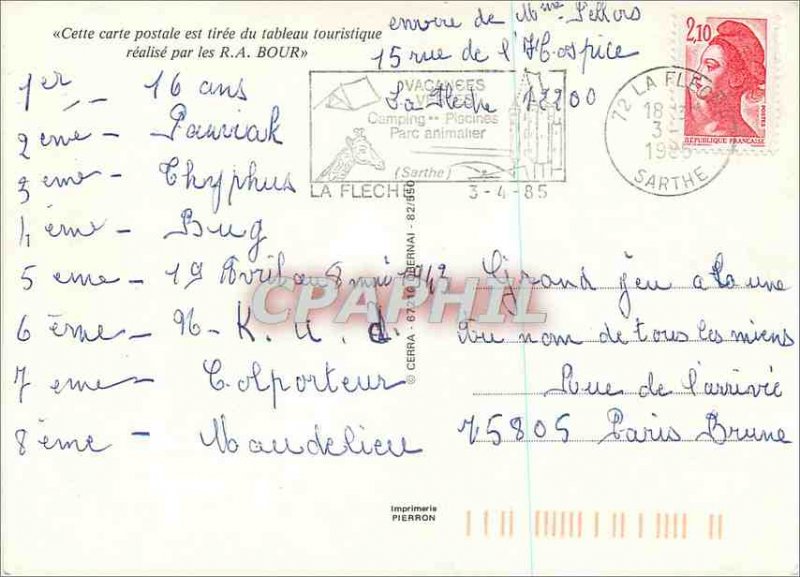 «Cette carte postale est tirée du tableau touristique
réalisé par les R.A. BOUR»
envoie de Mme
15 rue de l'Hospice
La Fleche 72200
1er - 16 ans
2eme - Pauriak
3eme - Thyphus
4ème - Bug
5eme - 19 Avril au 8 mai 1943
6ème - N - K. U. d.
7eme - Colporteur
8ème - Mandelieu
Grand jeu a la une
Au nom de tous les miens
Rue de l'arrivée
75805 Paris Brune
VACANCES
Camping •• Piscines
Parc animalier
(Sarthe)
LA FLECHE
3-4-85
72 LA FLECHE
18 H
3-
1985
SARTHE
2,10
POSTES
REPUBLIQUE FRANÇAISE
© CERRA - 67210 OBERNAI - 82/550
CPAPHIL
Imprimerie
PIERRON